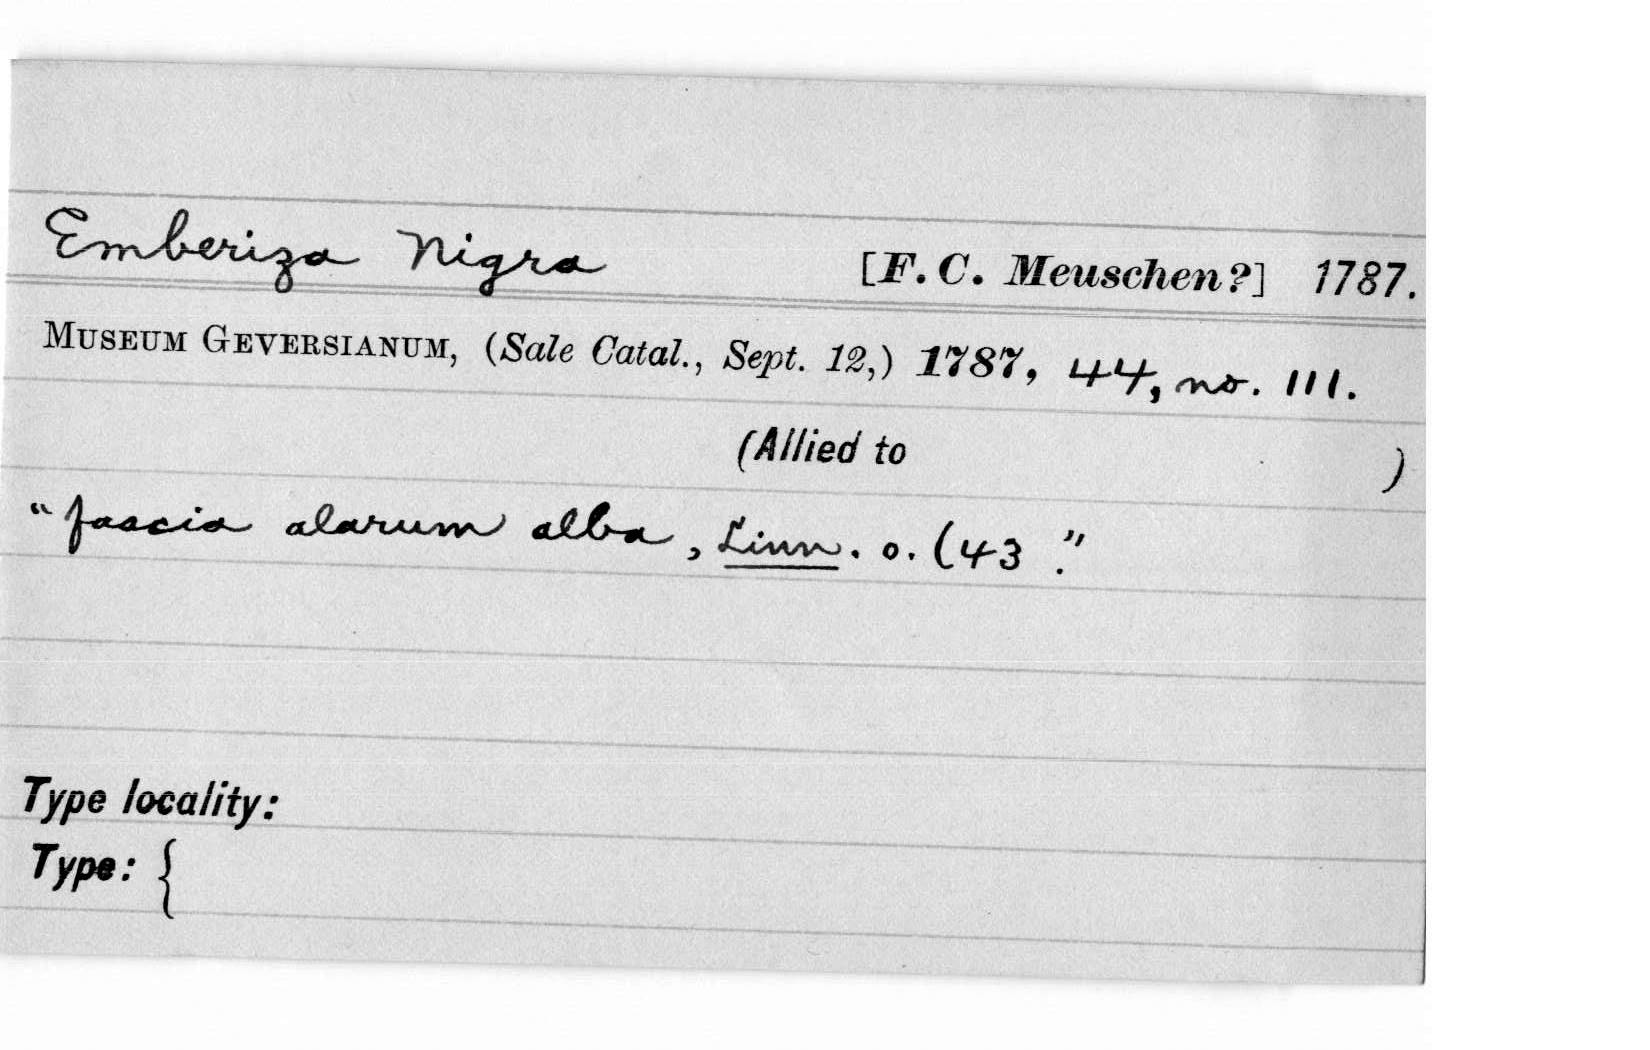 Emberiza Nigra [F. C. Meuschen?] 1787.
MUSEUM GEVERSIANUM, (Sale Catal., Sept. 12,) 1787, 44, no. 111.
(Allied to )
"fascia alarum alba, Linn. o. (43 ."
Type locality:
Type: {